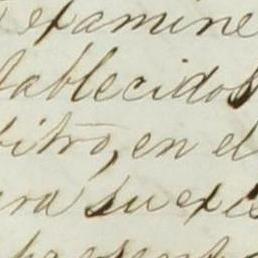 examine
tablecidos
bitro, en el
ara su exis